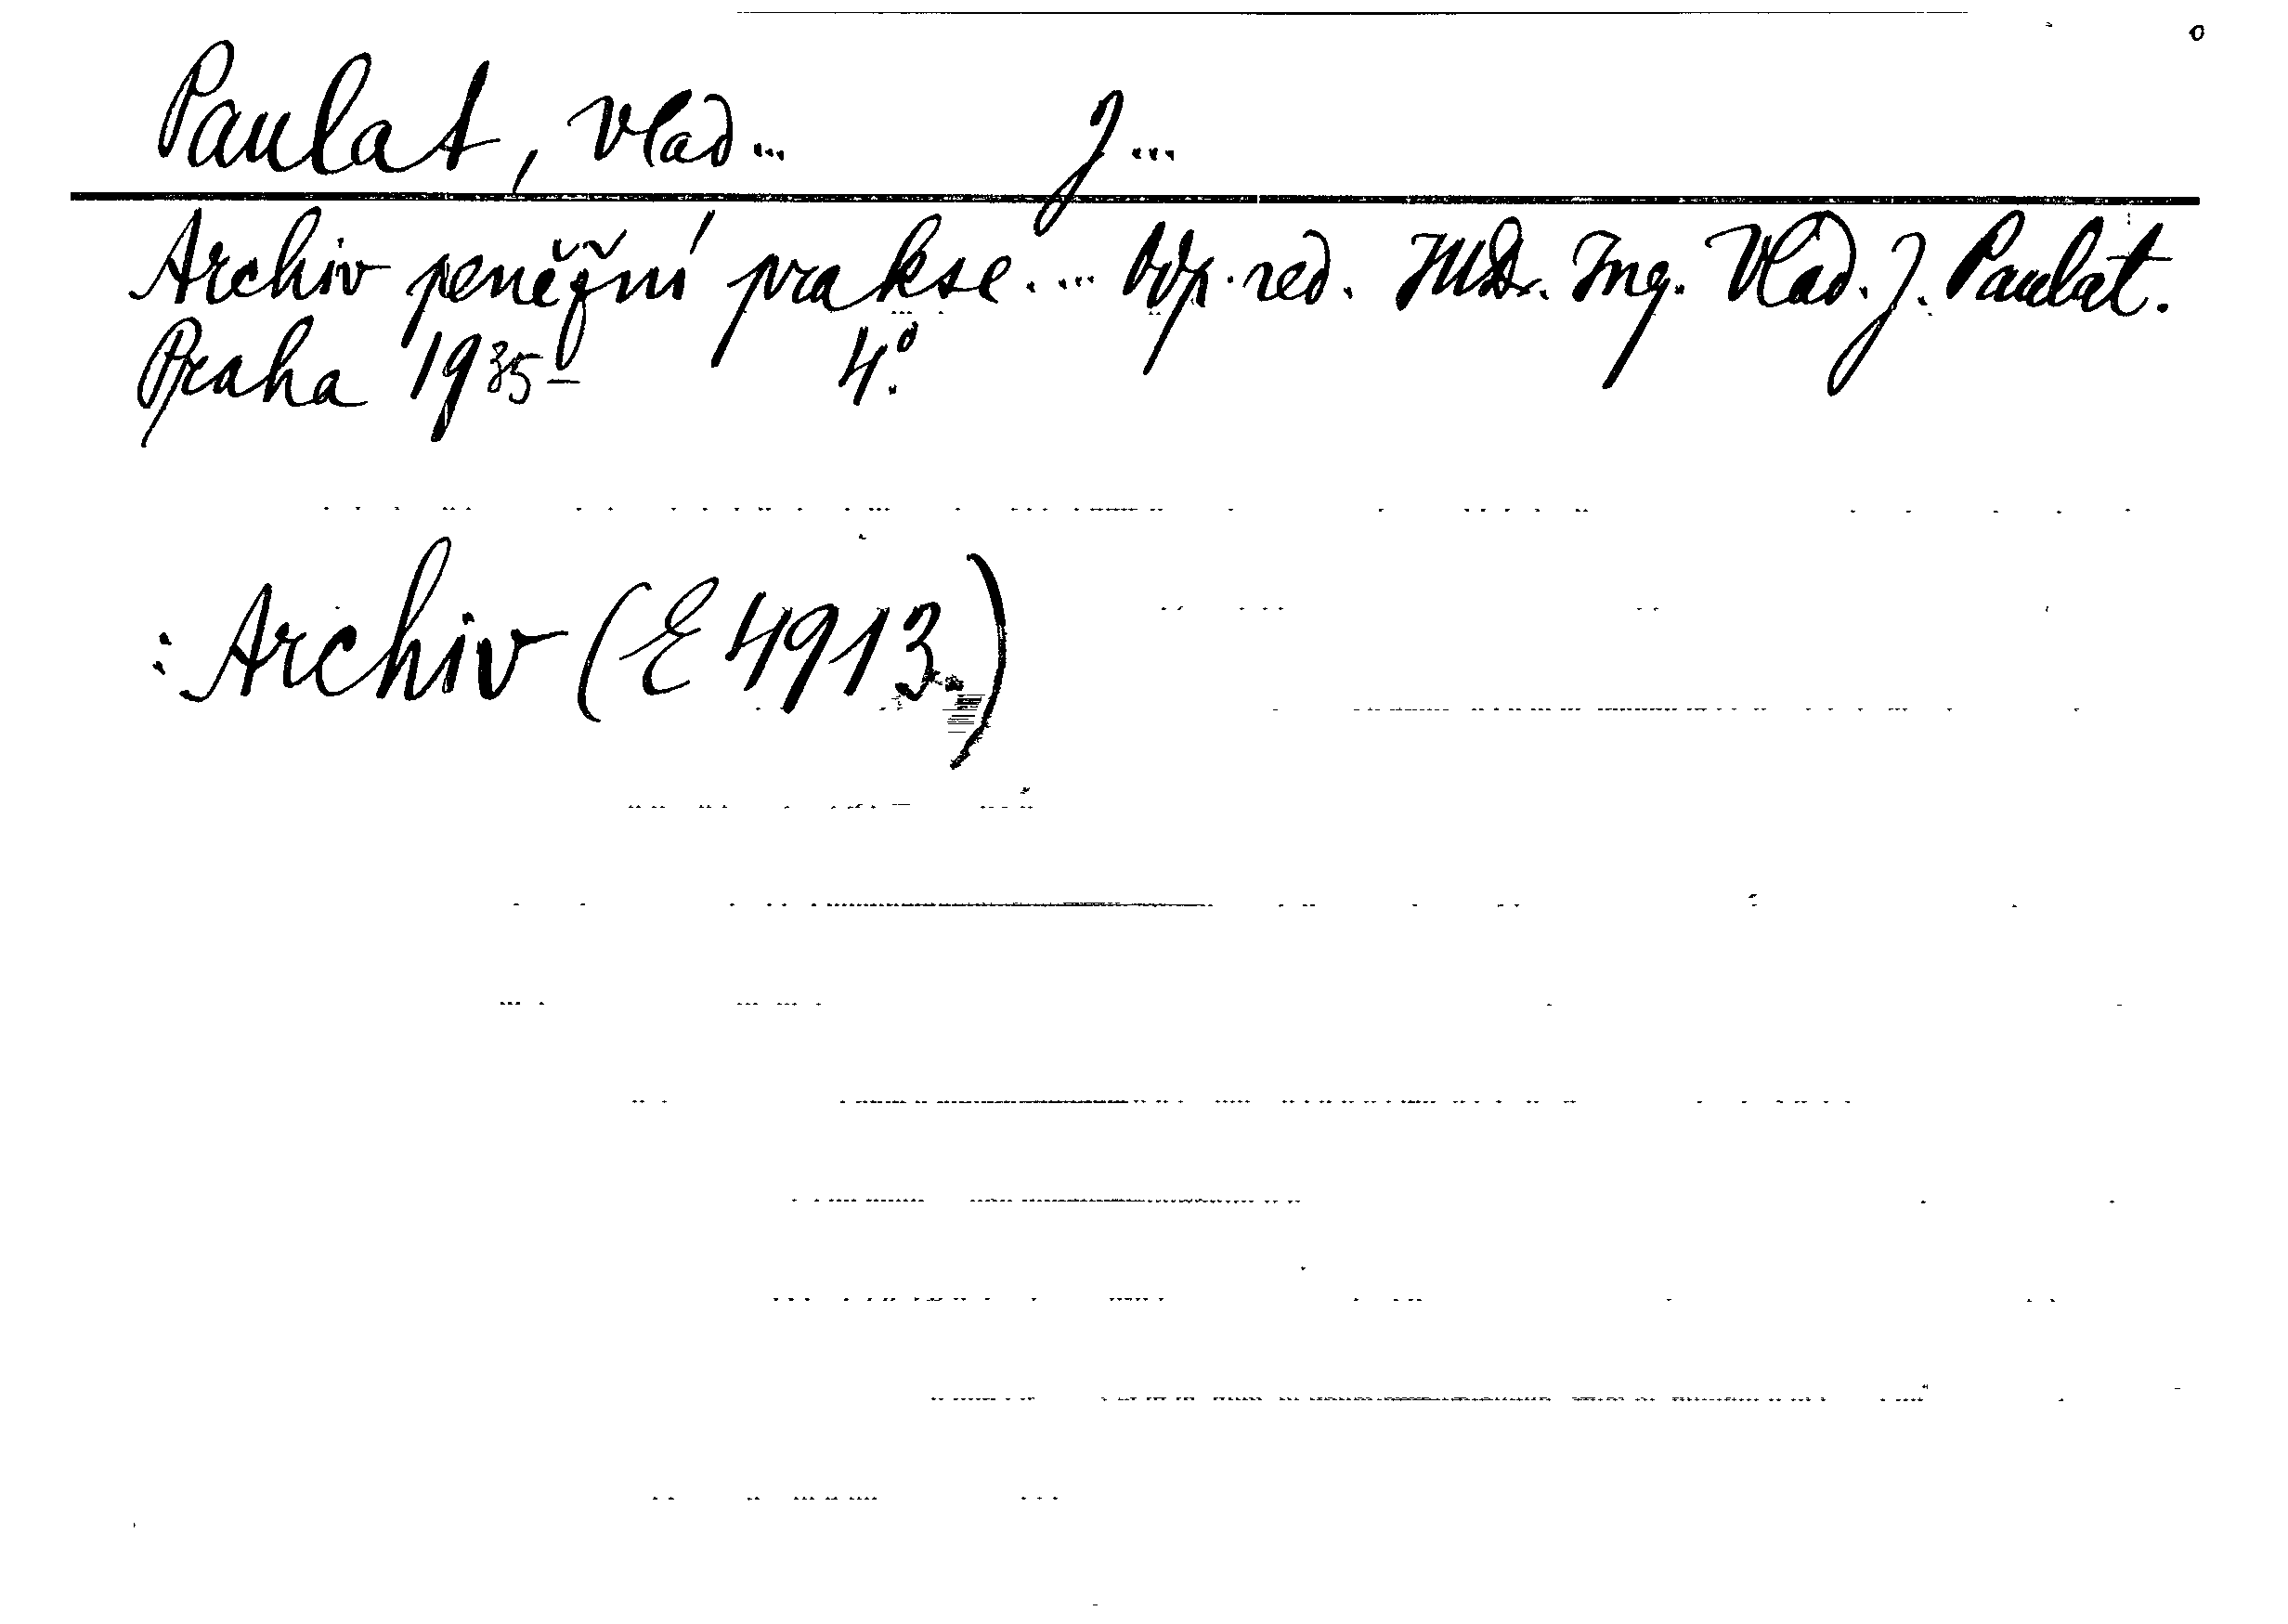 Paulat, Vlad... J...
Archiv peněžní prakse.... Odp. red. JUDr. Ing. Vlad. J. Paulat.
Praha 1935- 4°.
: Archiv (E 4913.)